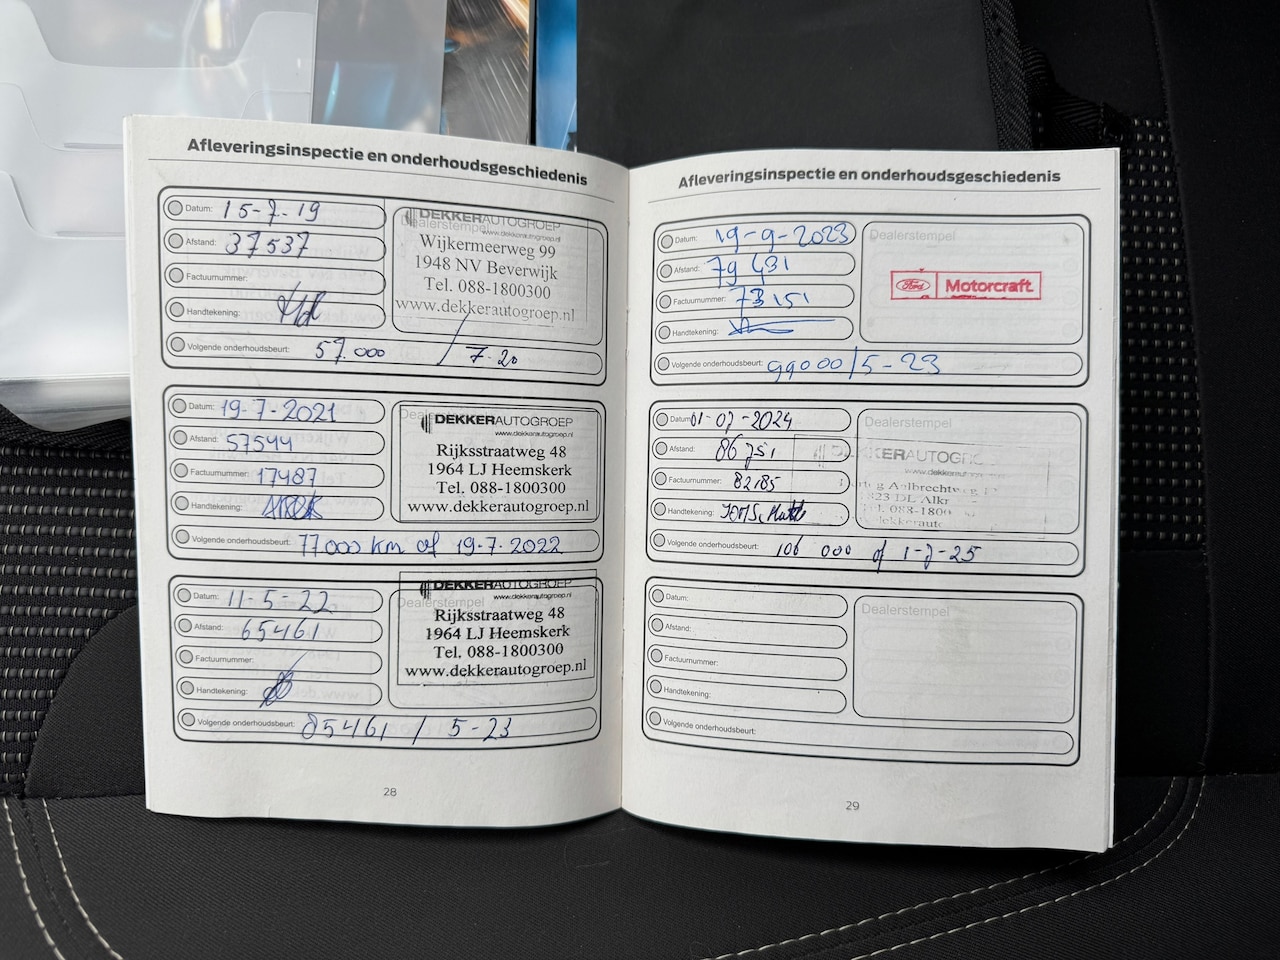 Afleveringsinspectie en onderhoudsgeschiedenis
Datum: 15-7-19
Afstand: 37537
Factuurnummer:
Handtekening:
Volgende onderhoudsbeurt: 57.000 / 7-20
Dealerstempel
DEKKERAUTOGROEP
www.dekkerautogroep.nl
Wijkermeerweg 99
1948 NV Beverwijk
Tel. 088-1800300
www.dekkerautogroep.nl
Datum: 19-7-2021
Afstand: 57544
Factuurnummer: 17487
Handtekening:
Volgende onderhoudsbeurt: 77000 km of 19-7-2022
DEKKERAUTOGROEP
www.dekkerautogroep.nl
Rijksstraatweg 48
1964 LJ Heemskerk
Tel. 088-1800300
www.dekkerautogroep.nl
Datum: 11-5-22
Afstand: 65461
Factuurnummer:
Handtekening:
Volgende onderhoudsbeurt: 85461 / 5-23
Dealerstempel
DEKKERAUTOGROEP
www.dekkerautogroep.nl
Rijksstraatweg 48
1964 LJ Heemskerk
Tel. 088-1800300
www.dekkerautogroep.nl
28
Afleveringsinspectie en onderhoudsgeschiedenis
Datum: 19-9-2023
Afstand: 79431
Factuurnummer: 73151
Handtekening:
Volgende onderhoudsbeurt: 99000/5-23
Dealerstempel
Ford Motorcraft
Datum: 01-07-2024
Afstand:
Factuurnummer: 82185
Handtekening:
Volgende onderhoudsbeurt: 106 000 of 1-7-25
Dealerstempel
DEKKERAUTOGR
Datum:
Afstand:
Factuurnummer:
Handtekening:
Volgende onderhoudsbeurt:
Dealerstempel
29